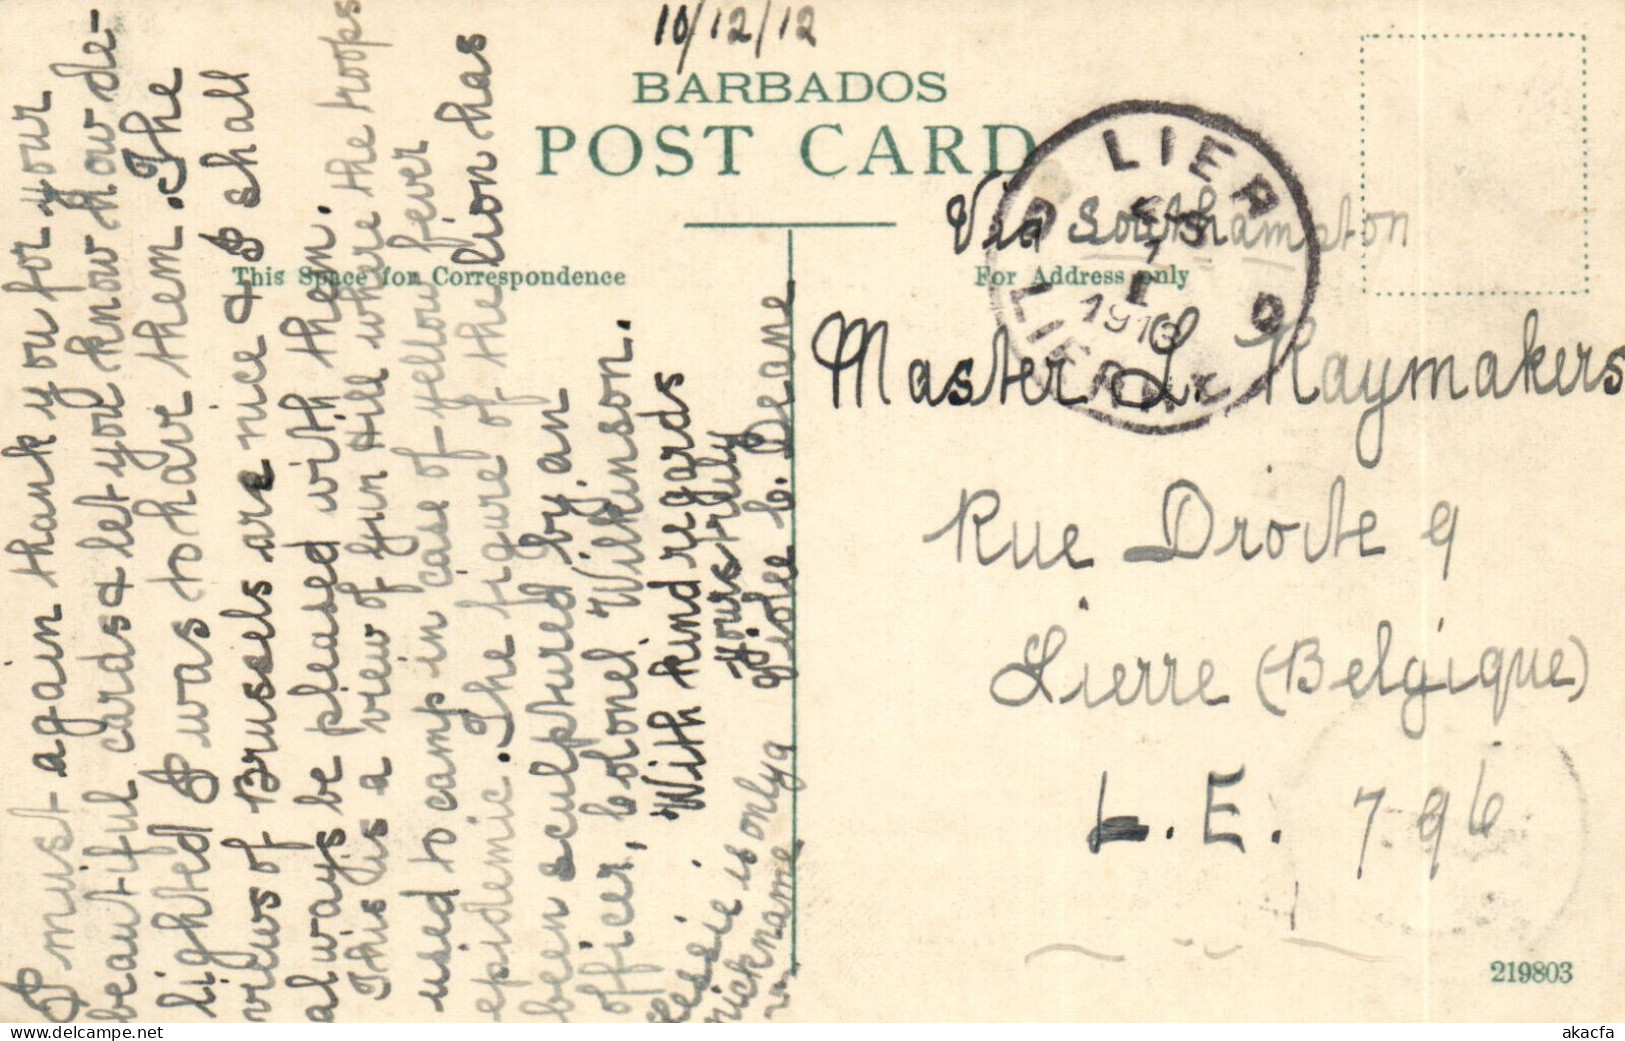 10/12/12
BARBADOS
POST CARD
This Space for Correspondence
For Address only
I must again thank you for your
beautiful cards & let you know how de-
lighted I was to have them. The
views of Brussels are nice & I shall
always be pleased with them.
This is a view of Gun Hill where the troops
used to camp in case of yellow fever
epidemic. The figure of the lion has
been sculptured by an
officer, Colonel Wilkinson.
With kind regards
Yours truly
Violet C. Deane
"Jessie" is only a
nickname
Via Southampton
Master L. Raymakers
Rue Droite 9
Lierre (Belgique)
L.E. 796
LIER
1913
LIERRE
219803
www.delcampe.net
akacfa